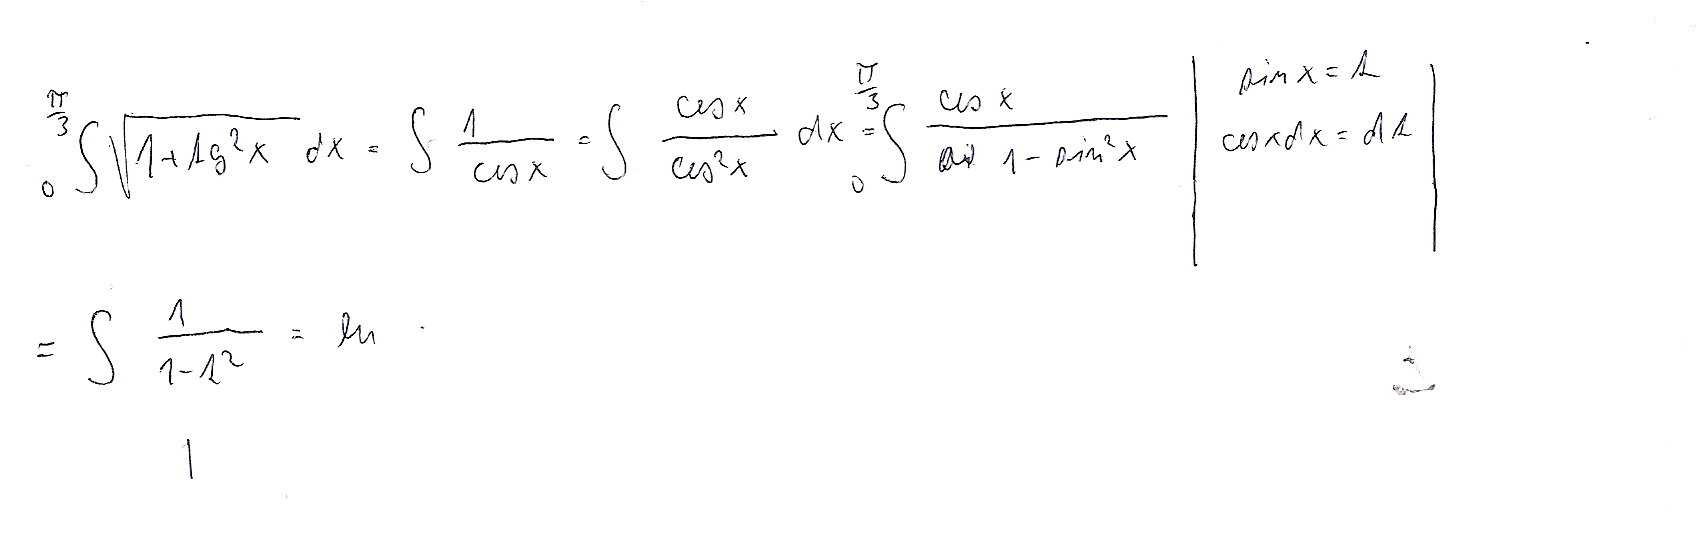 π/3 ∫ 0 √(1+tg²x) dx = ∫ 1/cos x = ∫ cos x/cos²x dx = π/3 ∫ 0 cos x/(1-sin²x) | sin x = t cos x dx = dt |
= ∫ 1/(1-t²) = ln
1